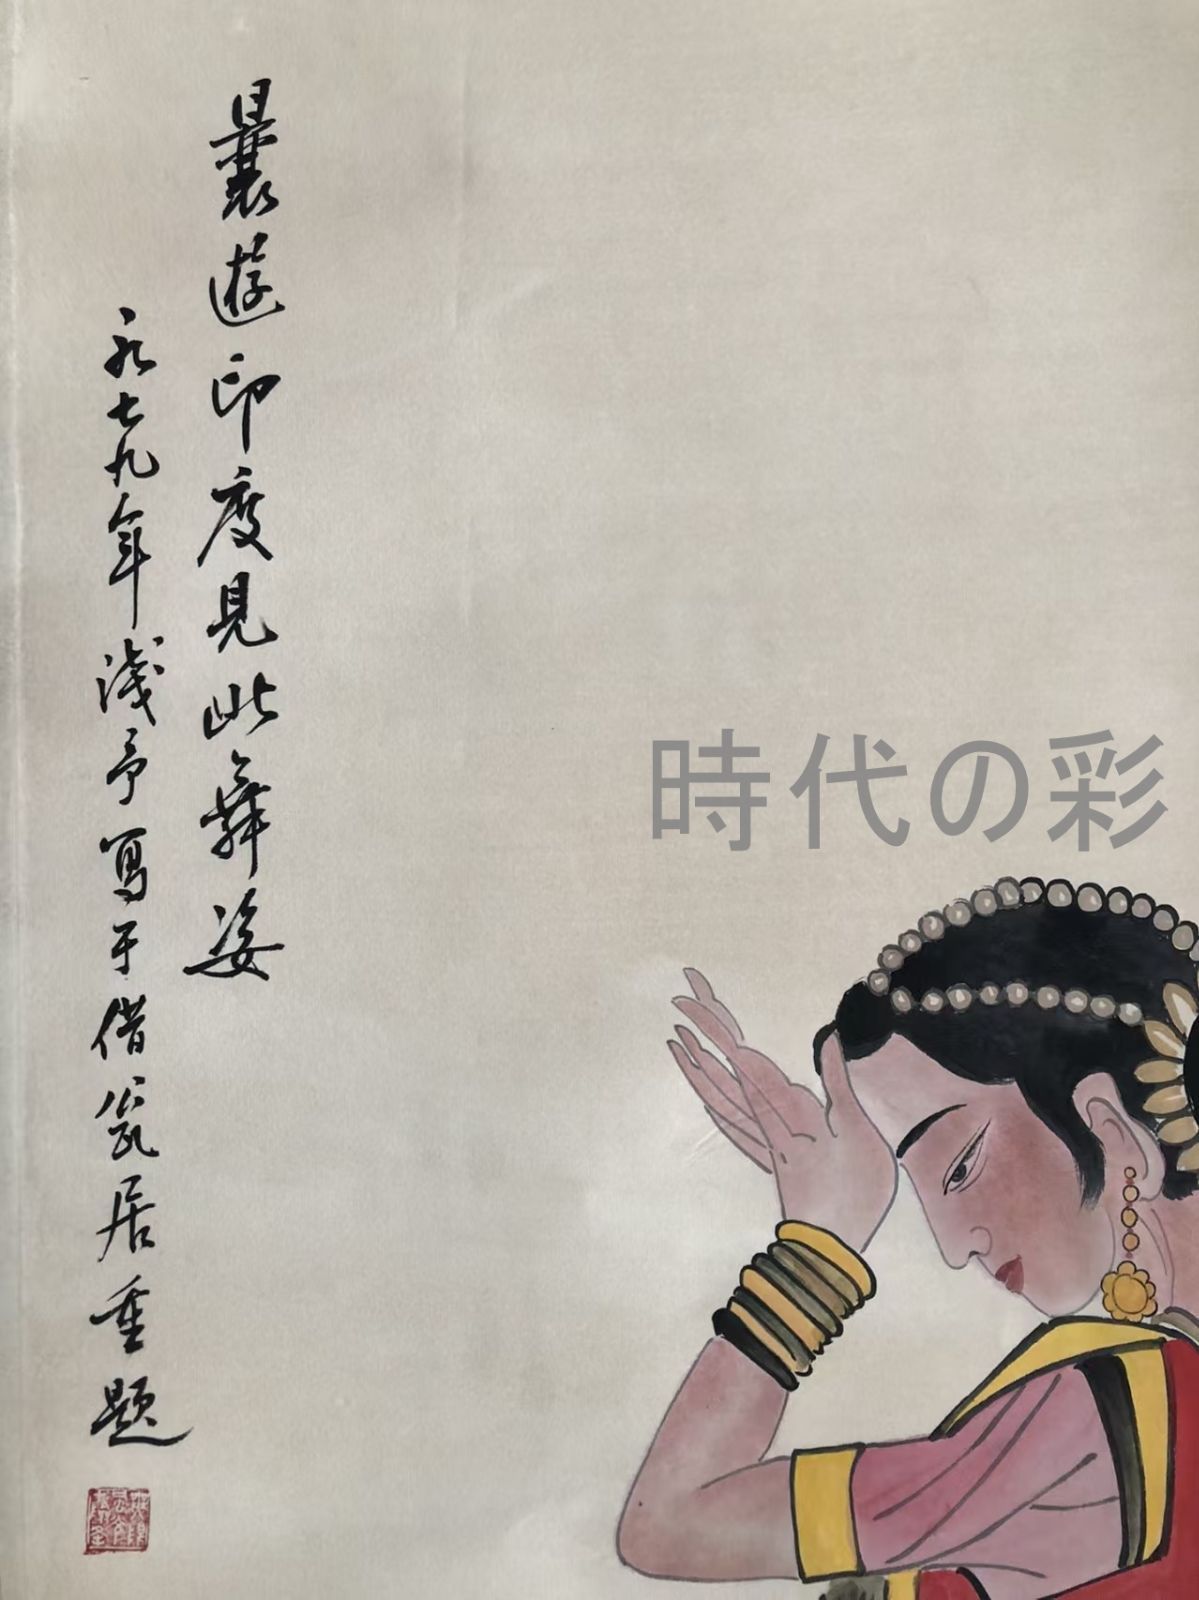 曩遊印度見此舞姿
一九七九年淺予寫于借瓮居重題
時代の彩